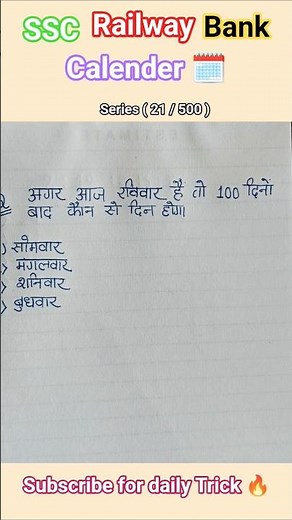 SSC Railway Bank
Calender
Series ( 21 / 500 )
अगर आज रविवार है तो 100 दिनों
बाद कौन से दिन होगा।
सोमवार
मंगलवार
शनिवार
बुधवार
Subscribe for daily Trick